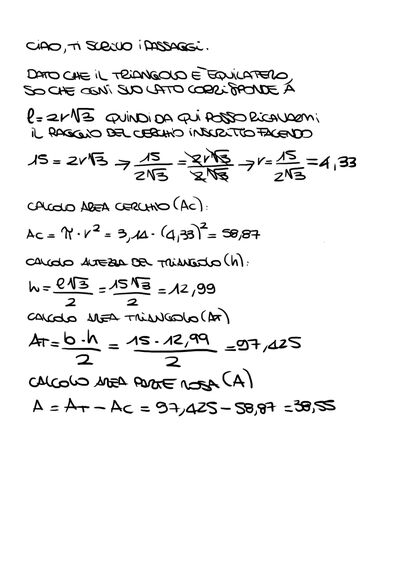 CIAO, TI SCRIVO I PASSAGGI.
DATO CHE IL TRIANGOLO È EQUILATERO,
SO CHE OGNI SUO LATO CORRISPONDE A
l = 2r√3 QUINDI DA QUI POSSO RICAVARMI
IL RAGGIO DEL CERCHIO INSCRITTO FACENDO
15 = 2r√3 → 15/2√3 = 2r√3/2√3 → r = 15/2√3 = 4,33
CALCOLO AREA CERCHIO (Ac):
Ac = π · r² = 3,14 · (4,33)² = 58,87
CALCOLO ALTEZZA DEL TRIANGOLO (h):
h = l√3/2 = 15√3/2 = 12,99
CALCOLO AREA TRIANGOLO (AT)
AT = b·h/2 = 15 · 12,99/2 = 97,425
CALCOLO AREA PARTE ROSA (A)
A = AT − Ac = 97,425 − 58,87 = 38,55